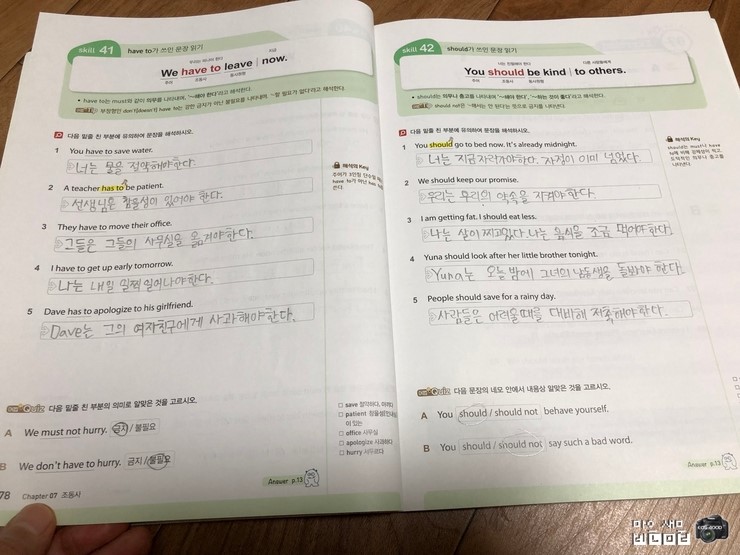 Skill 41 have to가 쓰인 문장 읽기
우리는 떠나야 한다 지금
We have to leave now.
주어 조동사 동사원형
• have to는 must와 같이 의무를 나타내며, '~해야 한다'라고 해석한다.
부정형인 don't[doesn't] have to는 강한 금지가 아닌 불필요를 나타내며, '~할 필요가 없다'라고 해석한다.
다음 밑줄 친 부분에 유의하여 문장을 해석하시오.
1 You have to save water.
너는 물을 절약해야한다.
2 A teacher has to be patient.
선생님은 참을성이 있어야 한다.
3 They have to move their office.
그들은 그들의 사무실을 옮겨야한다.
4 I have to get up early tomorrow.
나는 내일 일찍 일어나야한다.
5 Dave has to apologize to his girlfriend.
Dave는 그의 여자친구에게 사과해야한다.
해석의 Key
Quiz 다음 밑줄 친 부분의 의미로 알맞은 것을 고르시오.
A We must not hurry. 금지 / 불필요
B We don't have to hurry. 금지 / 불필요
save 절약하다, 아끼다
patient 참을성(인내심)
이 있는
office 사무실
apologize 사과하다
hurry 서두르다
Answer p.13
78 Chapter 07 조동사
Skill 42 should가 쓰인 문장 읽기
너는 친절해야 한다 다른 사람들에게
You should be kind to others.
주어 조동사 동사원형
• should는 의무나 충고를 나타내며 '~해야 한다', '~하는 것이 좋다'라고 해석한다.
should not은 '~해서는 안 된다'는 뜻으로 금지를 나타낸다.
다음 밑줄 친 부분에 유의하여 문장을 해석하시오.
1 You should go to bed now. It's already midnight.
너는 지금 자러가야한다. 자정이 이미 넘었다.
2 We should keep our promise.
우리는 우리의 약속을 지켜야 한다.
3 I am getting fat. I should eat less.
나는 살이 찌고있다. 나는 음식을 조금 먹어야한다.
4 Yuna should look after her little brother tonight.
Yuna는 오늘 밤에 그녀의 남동생을 돌봐야 한다.
5 People should save for a rainy day.
사람들은 어려울때를 대비해 저축해야한다.
해석의 Key
Quiz 다음 문장의 네모 안에서 내용상 알맞은 것을 고르시오.
A You should / should not behave yourself.
B You should / should not say such a bad word.
Answer p.13